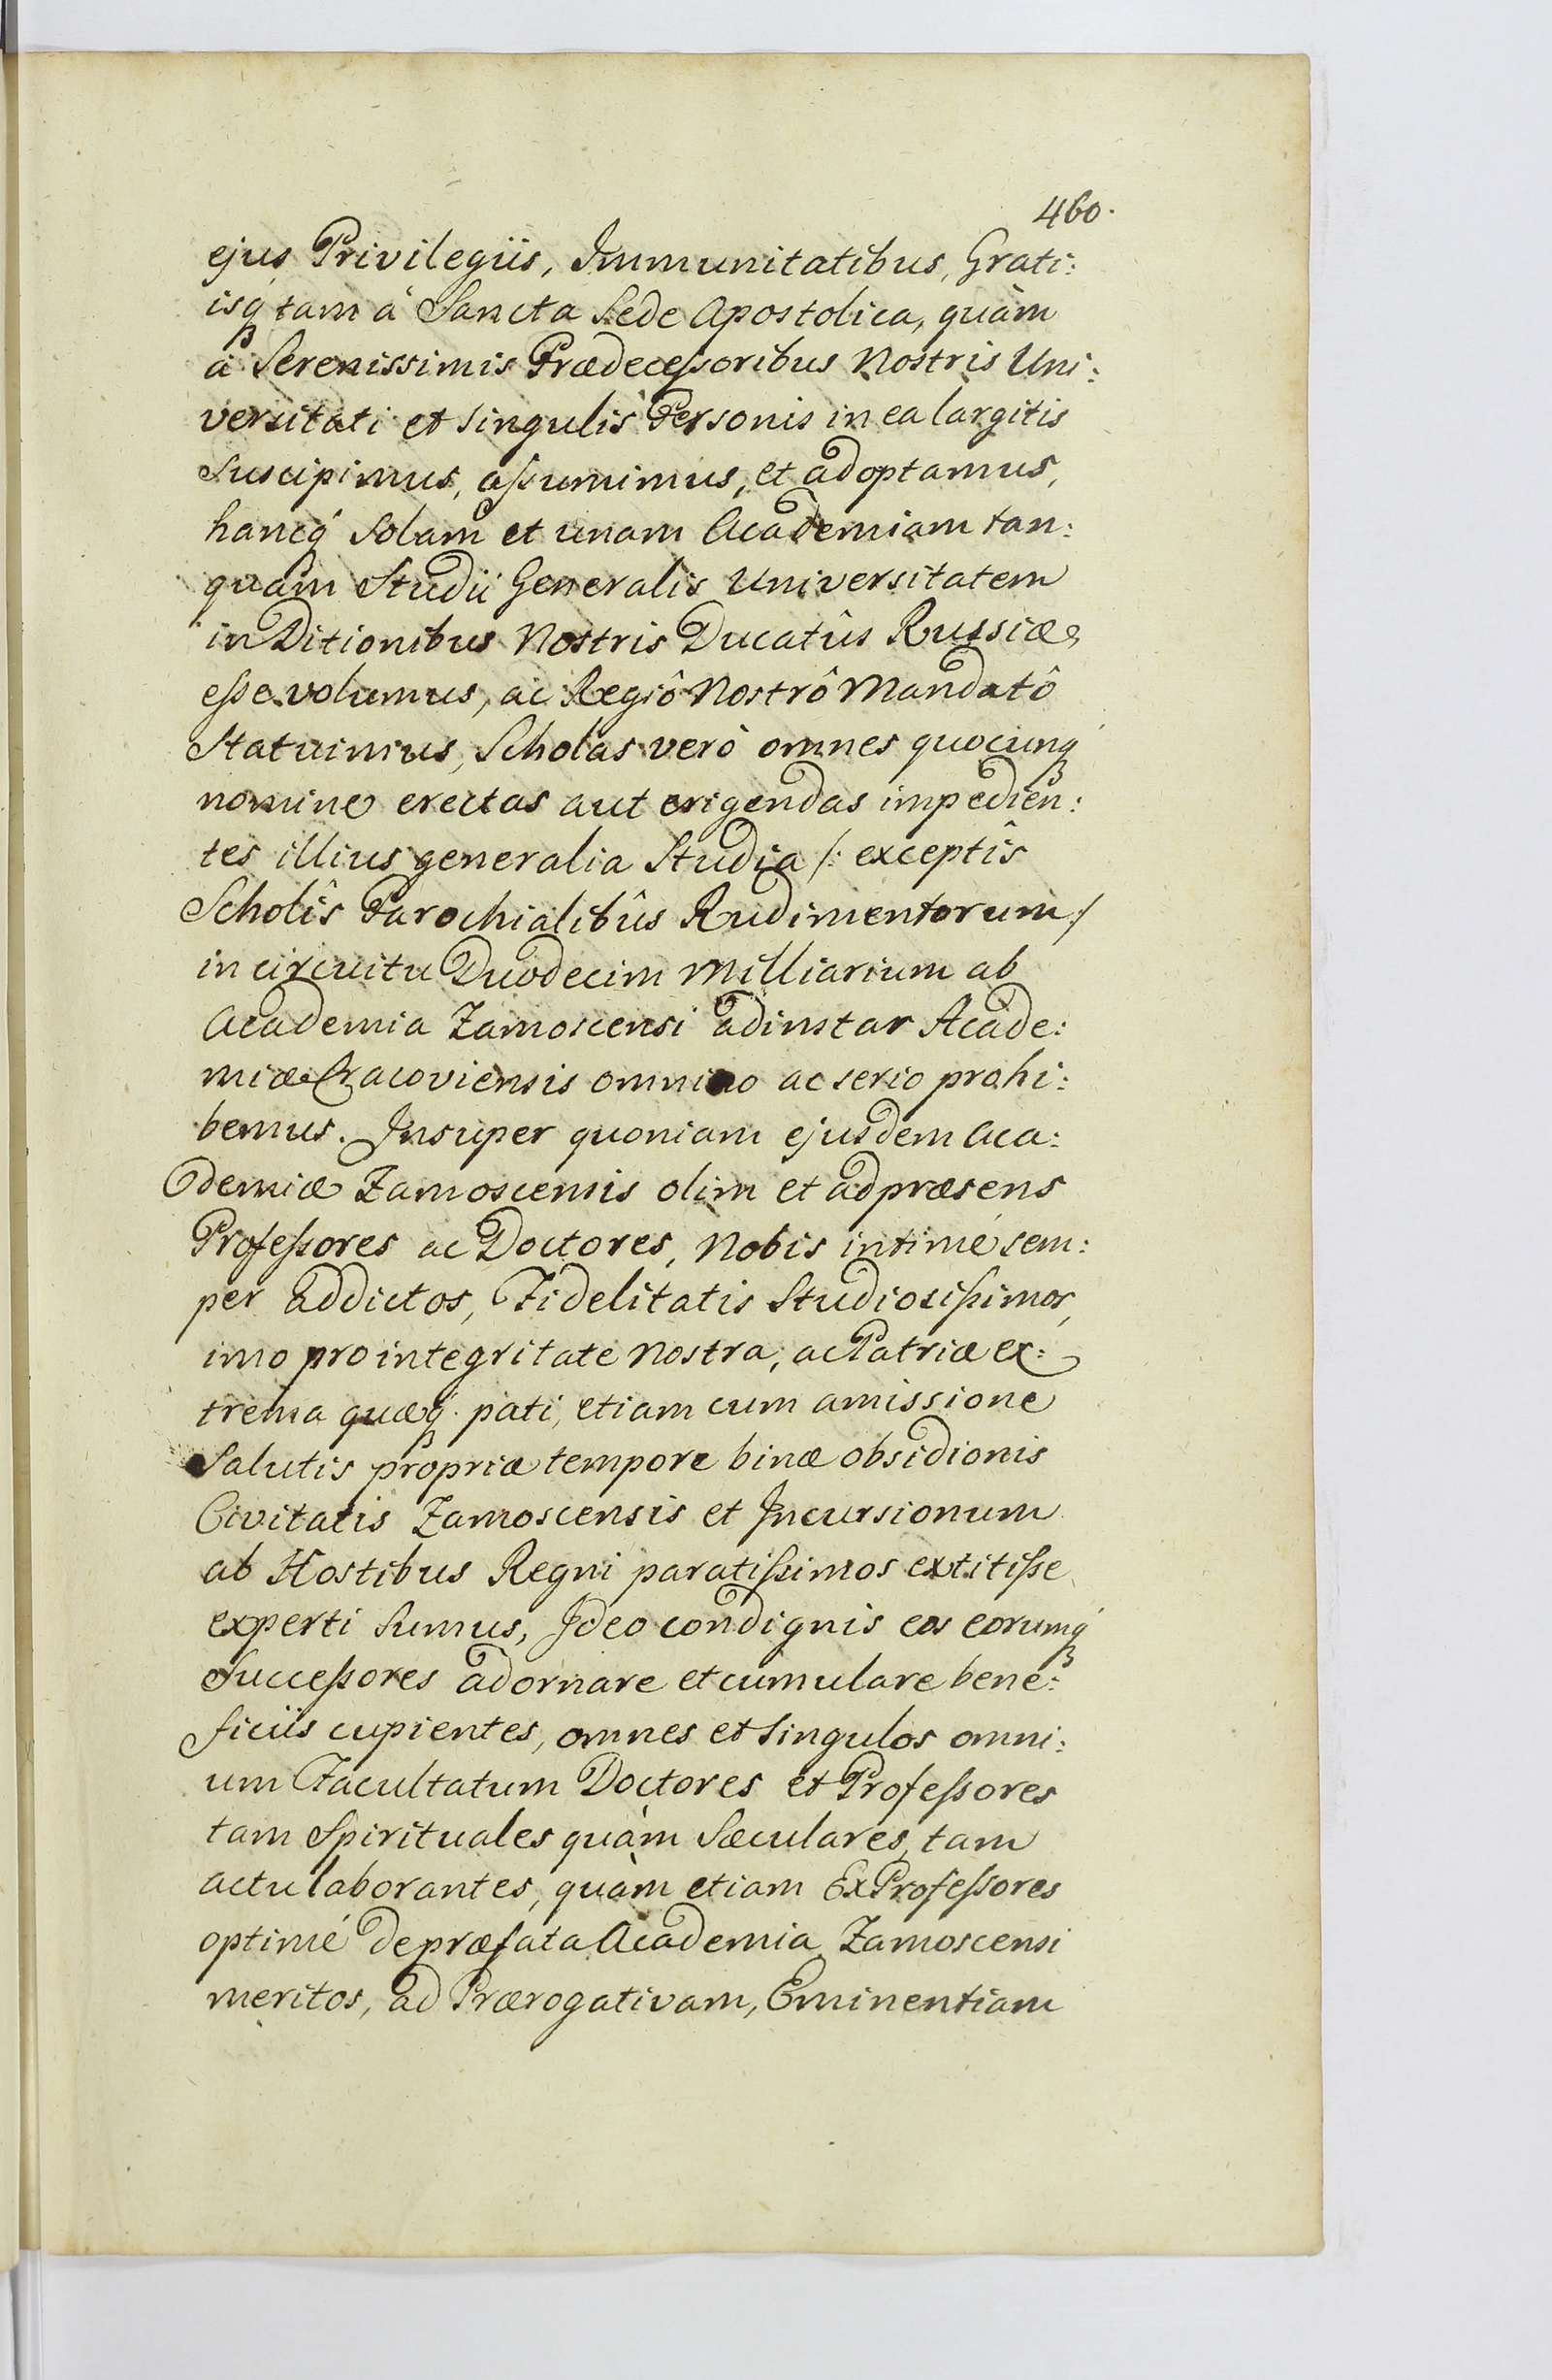 460.
ejus Privilegiis, Immunitatibus, Grati:
isq₃ tam à Sancta Sede Apostolica, quàm
à Serenissimis Prædeceſsoribus Nostris Uni:
versitati et singulis Personis in ea largitis
Suscipimus, aſsumimus, et adoptamus,
hancq₃ Solam et unam Academiam tan:
quam Studii Generalis Universitatem
in Ditionibus Nostris Ducatûs Russiæ
eſse volumus, ac Regiô Nostrô Mandatô
Statuimus, Scholas verò omnes quocunq₃
nomine erectas aut erigendas impedien:
tes illius generalia Studia /: exceptîs
Scholîs Parochialibûs Rudimentorum :/
in circuitu Duodecim Milliarium ab
Academia Zamoscensi adinstar Acade:
miæ Cracoviensis omnino ac serio prohi:
bemus. Insuper quoniam ejusdem Aca:
demiæ Zamoscensis olim et ad præsens
Profeſsores ac Doctores, Nobis intimé sem:
per addictos, Fidelitatis Studiosiſsimos,
imo pro integritate Nostra, ac Patriæ ex:
trema quæq₃ pati, etiam cum amissione
Salutis propriæ tempore binæ obsidionis
Civitatis Zamoscensis et Incursionum
ab Hostibus Regni paratiſsimos extitiſse
experti Sumus, Ideo condignis eos eorumq₃
Succeſsores adornare et cumulare bene:
ficiis cupientes, omnes et Singulos omni:
um Facultatum Doctores et Profeſsores
tam Spirituales quàm Sæculares, tam
actu laborantes, quàm etiam Ex Profeſsores
optimé de præfata Academia Zamoscensi
meritos, ad Prærogativam, Eminentiam